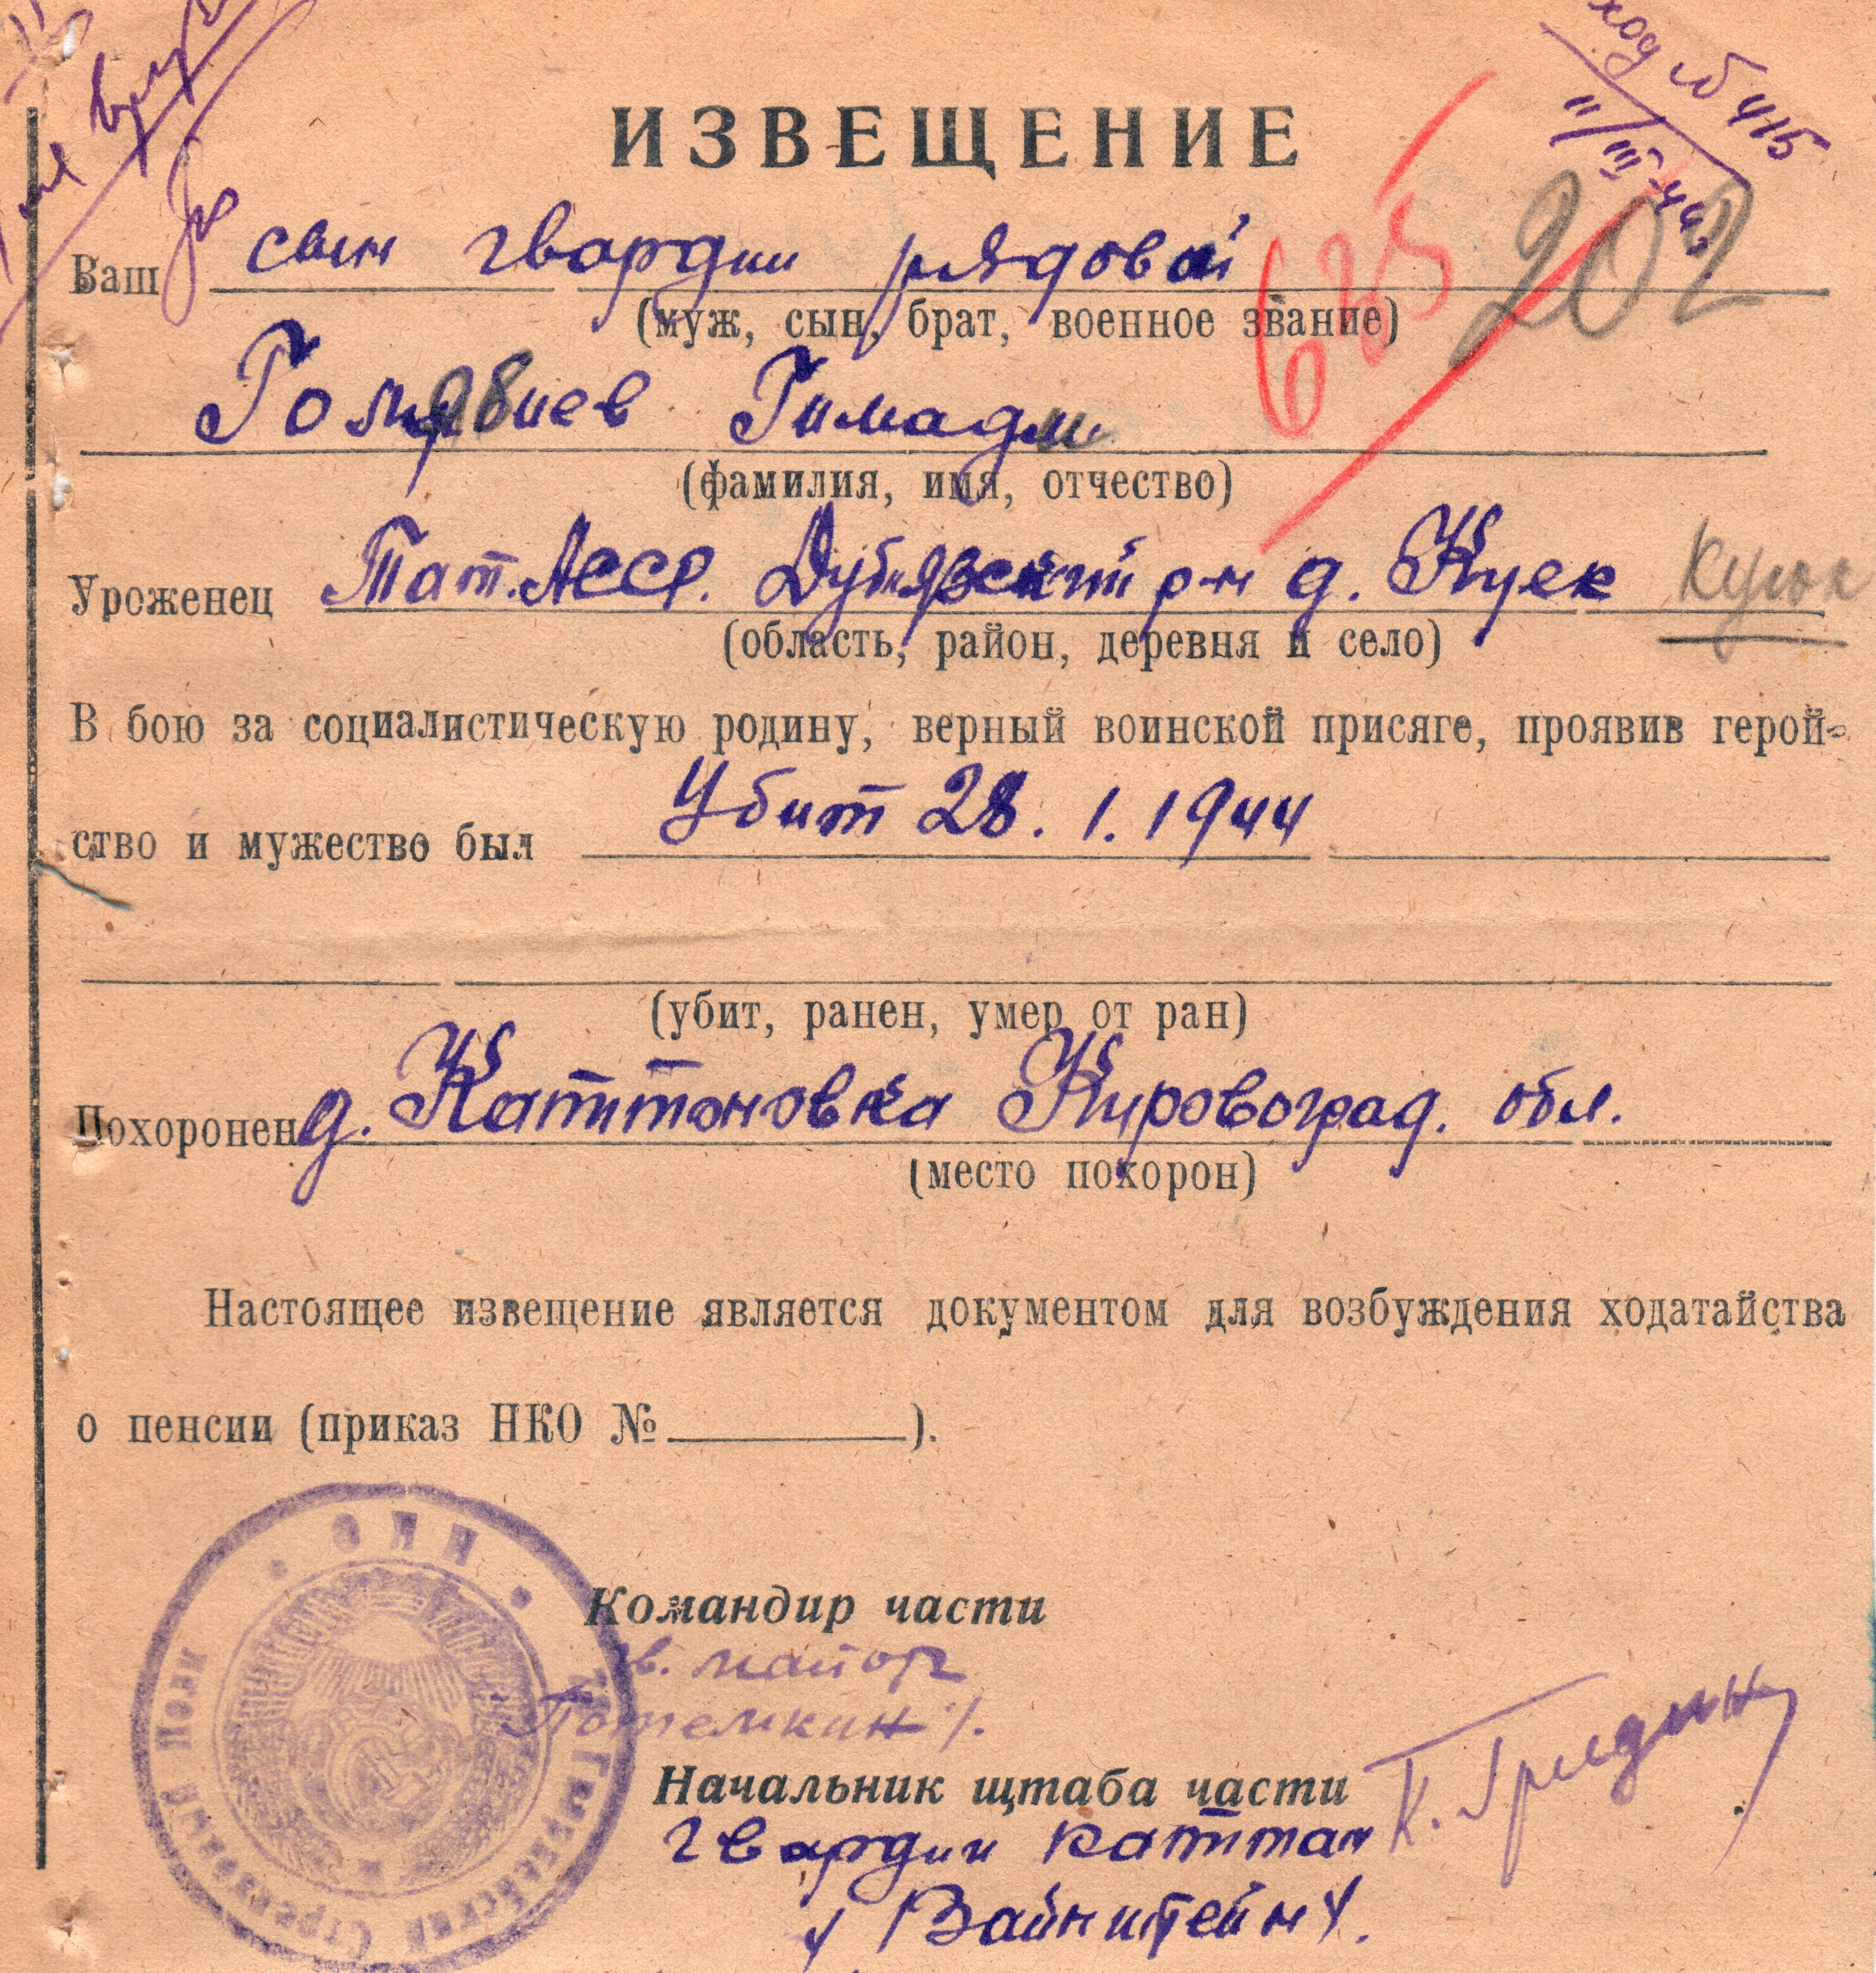 не вру
ход № 415
11/III-44г.
ИЗВЕЩЕНИЕ
625 202
Ваш сын гвардии рядовой
(муж, сын, брат, военное звание)
Гимадми
(фамилия, имя, отчество)
Уроженец Тат. АССР. Дубъязский р-н д. Куек Куюк
(область, район, деревня и село)
В бою за социалистическую родину, верный воинской присяге, проявив герой-
ство и мужество был Убит 28.1.1944
(убит, ранен, умер от ран)
Похоронен д. Капитоновка Кировоград. обл.
(место похорон)
Настоящее извещение является документом для возбуждения ходатайства
о пенсии (приказ НКО № ).
НКО
Стрелковый Полк
Командир части
гв. майор
Потемкин/.
Начальник щтаба части
К. Гридин
Гвардии капитан
/Вайнштейн/.